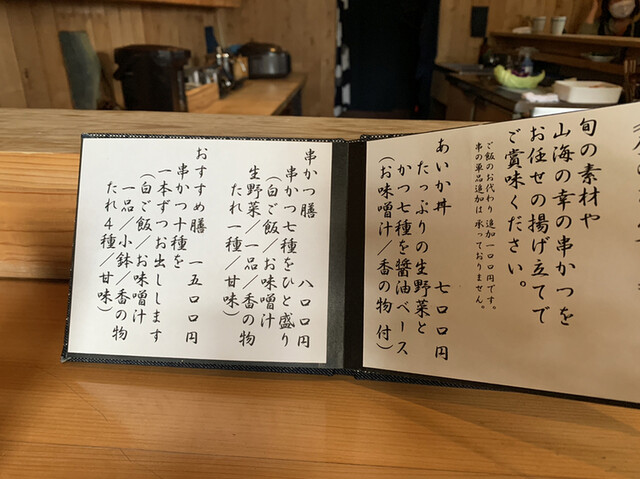 旬の素材や
山海の幸の串かつを
お任せの揚げ立てで
ご賞味ください。
ご飯のお代わり 追加一〇〇円です。
串の単品追加は 承っておりません。
あいか丼 七〇〇円
たっぷりの生野菜と
かつ七種を醤油ベース
(お味噌汁/香の物 付)
串かつ膳 八〇〇円
串かつ七種をひと盛り
(白ご飯/お味噌汁
生野菜/一品/香の物
たれ一種/甘味)
おすすめ膳 一五〇〇円
串かつ十種を
一本ずつお出しします
(白ご飯/お味噌汁
一品/小鉢/香の物
たれ4種/甘味)